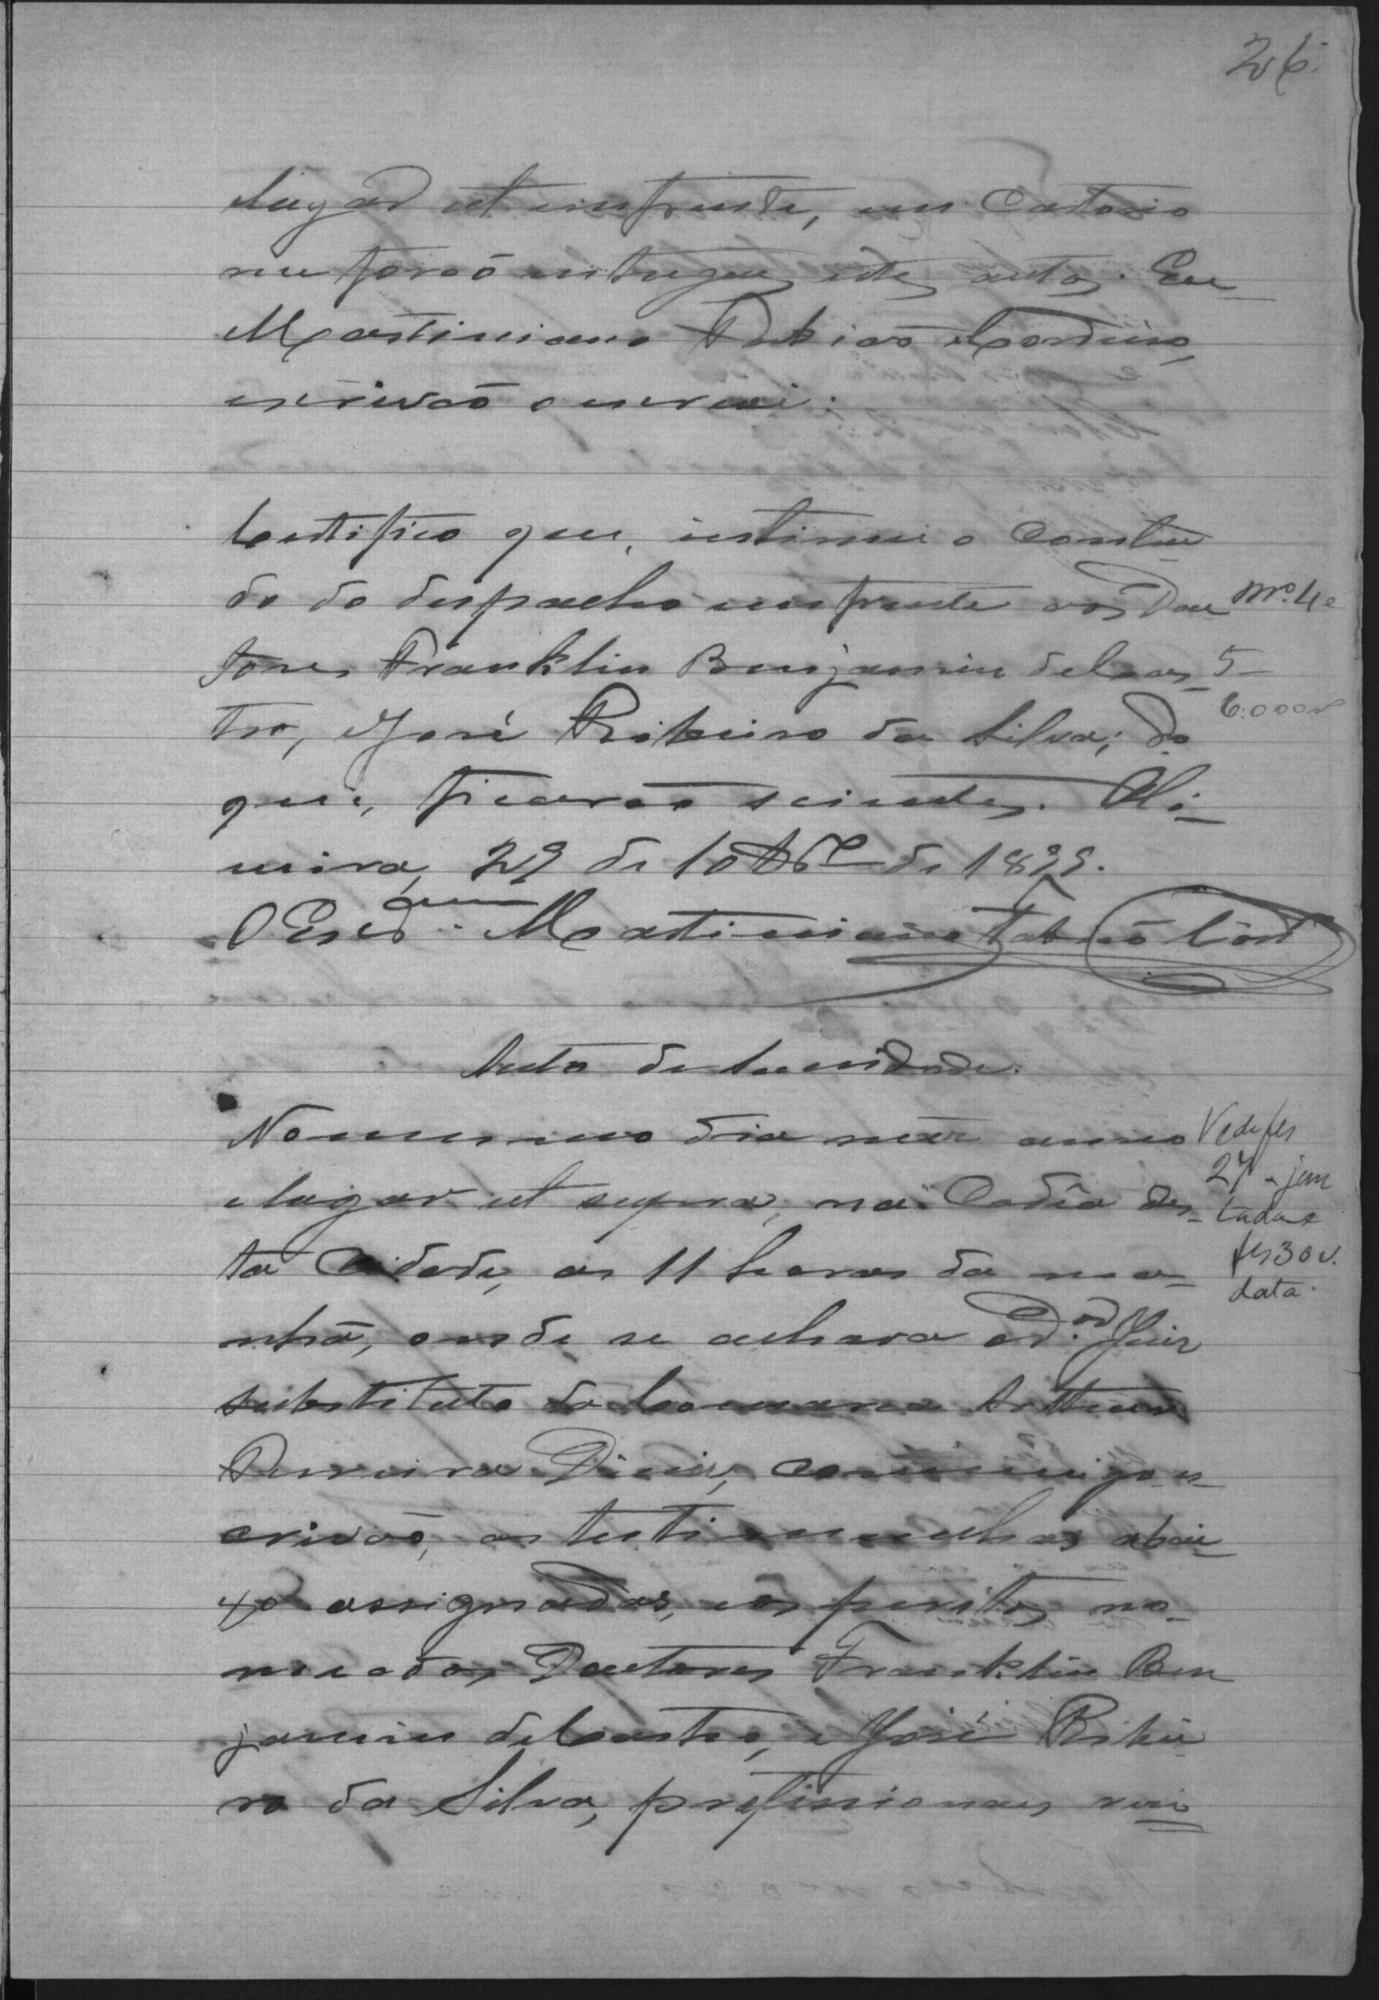 26.
lugar et emfrente, em Cartorio
me forão entregues estes autos. Eu
Martiniano Fabião Cordeiro,
escrivão o escrevi.
Certifico que, intimei o conteu
do do despacho emfrente aos Dou
tores Franklin Benjamin de Cas-
tro, e José Ribeiro da Silva; do
que, ficarão scientes. Li-
meira, 29 de 10bro de 1899.
O Escram. Martiniano Fabião Cord
Nos. 4 e
5
6.000
Auto de Sanidade.
No mesmo dia mez anno
e lugar et supra, na Cadêa des-
ta Cidade, as 11 horas da ma-
nhã, onde se achava o Juiz
substituto da Comarca Arthur
Pereira Diniz, commigo es-
crivão, as testimunhas abai-
xo assignadas, e os peritos no-
meados Doutores Franklin Ben
jamin de Castro, e José Ribei
ro da Silva, profissionaes rezi
Vede fls
27 - jun
tada e
fls 30 v.
data.